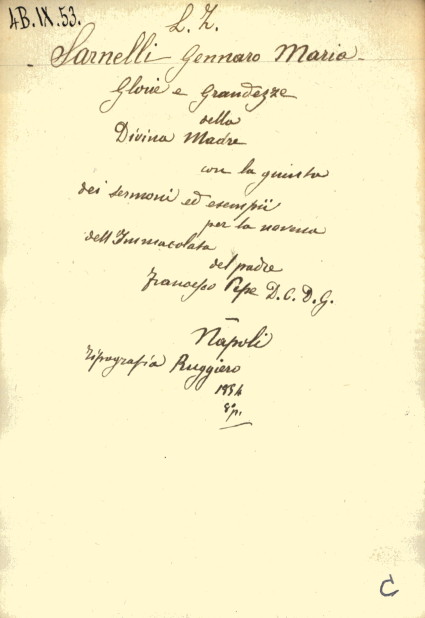 4B.IX.53.
L. Z.
Sarnelli Gennaro Maria
Glorie e Grandezze
della
Divina Madre
con la giunta
dei sermoni ed esempii
per la novena
dell'Immacolata
del padre
Francesco Pepe D. C. D. G.
Napoli
Tipografia Ruggiero
8º p.
C